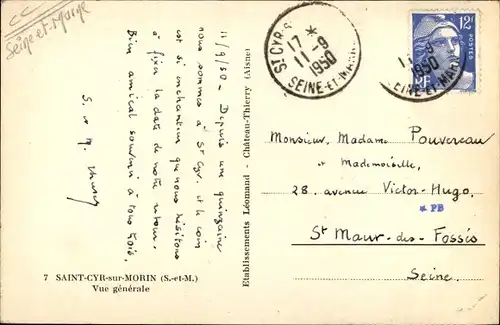 CC
Seine-et-Marne
11/9/50 - Depuis une quinzaine
nous sommes à St Cyr. et le coin
est si enchanteur que nous hésitons
à fixer la date de notre retour.
Bien amical souvenir à tous trois.
S. et M.
7 SAINT-CYR-sur-MORIN (S.-et-M.)
Vue générale
Etablissements Léomand - Château-Thierry (Aisne)
ST CYR-S
17 *
11-9
1950
SEINE-ET-MARNE
12F
POSTES
RF
11-9
1950
SEINE-ET-MARNE
Monsieur, Madame Pouvereau
et Mademoiselle,
28. avenue Victor-Hugo.
* PB
St Maur-des-Fossés
Seine.